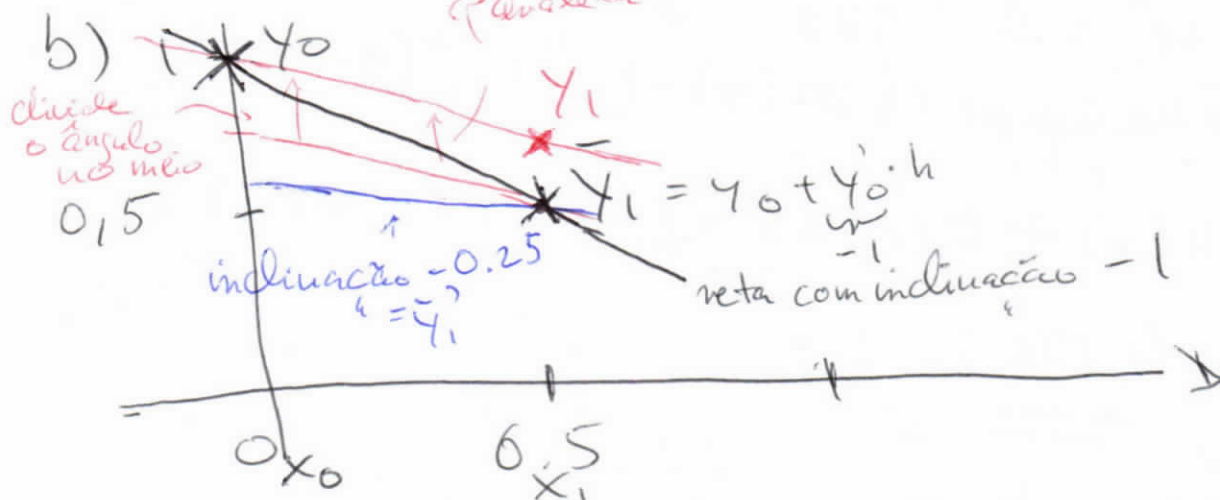 b) 1 y₀
divide
o ângulo
no meio
Y₁
0,5
Y₁ = y₀ + y₀' · h
-1
inclinação -0.25
" = ȳ₁'
reta com inclinação -1
0 0.5
x₀ x₁